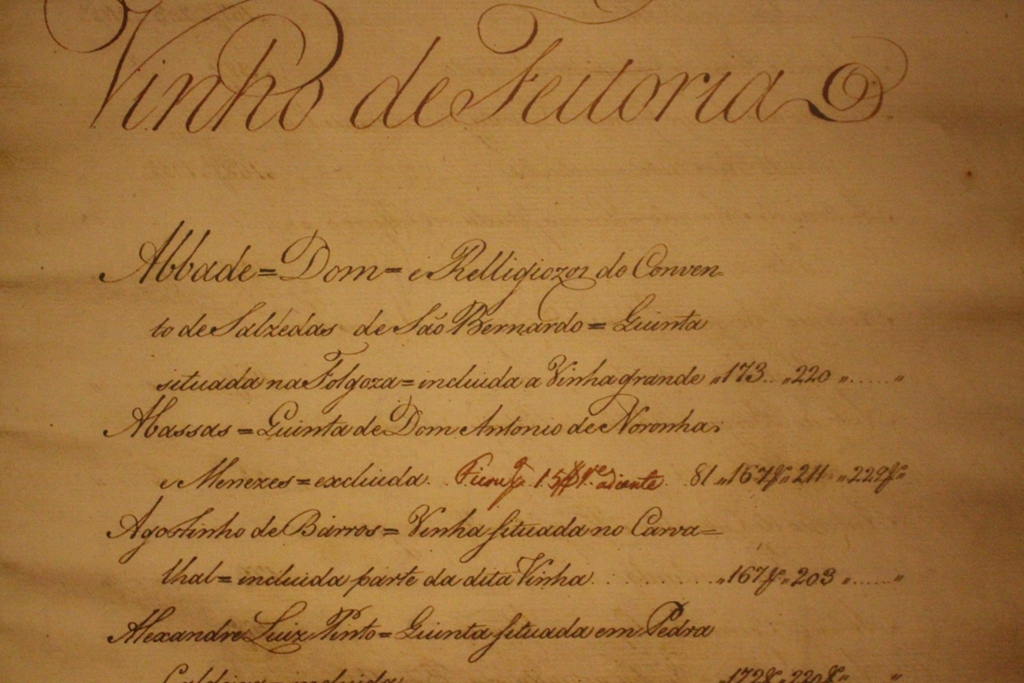 Vinho de Feitoria
Abbade = Dom = e Relligiozos do Conven=
to de Salzedas de São Bernardo = Quinta
situada na Folgoza = incluida a Vinha grande „173.. „220 „...... „
Abassas = Quinta de Dom Antonio de Noronha
e Menezes = excluida. 15 adiante 81 „167 „211 „229
Agostinho de Barros = Vinha situada no Carva=
lhal = incluida parte da dita Vinha. . . . . . . . „167 „203 „...... „
Alexandre Luiz Pinto = Quinta situada em Pedra
Caldeira = incluida „172 „220 „